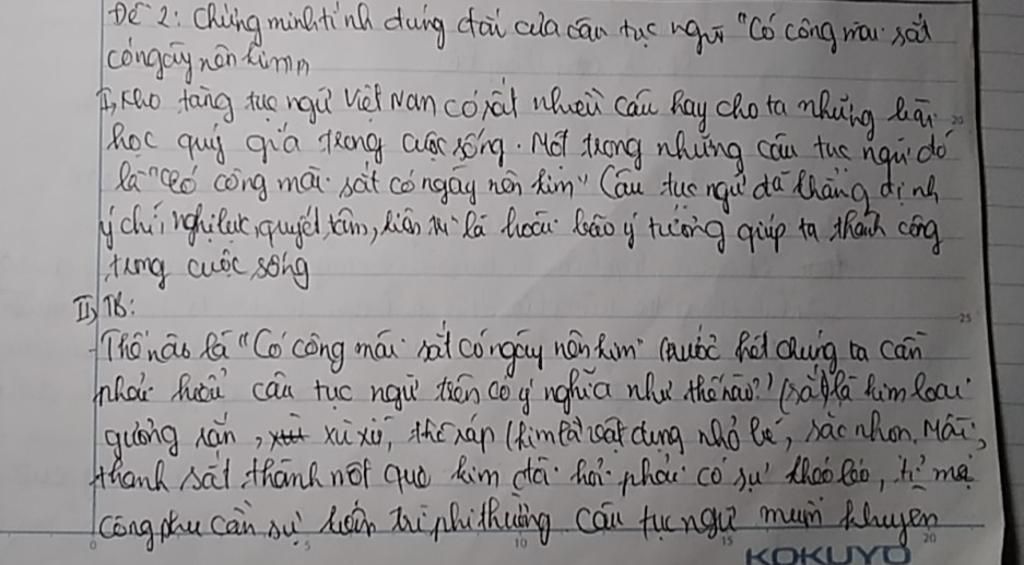 Đề 2: Chứng minh tính đúng đắn của câu tục ngữ "Có công mài sắt
có ngày nên kim"
I, Kho tàng tục ngữ Việt Nam có rất nhiều câu hay cho ta những bài
học quý giá trong cuộc sống. Một trong những câu tục ngữ đó
là "Có công mài sắt có ngày nên kim" Câu tục ngữ đã khẳng định
ý chí, nghị lực, quyết tâm, kiên trì là hoài bão ý tưởng giúp ta thành công
trong cuộc sống
II, TB:
Thế nào là "Có công mài sắt có ngày nên kim" trước hết chúng ta cần
phải hiểu câu tục ngữ trên có ý nghĩa như thế nào? (sắt) là kim loại
gương rắn, xù xì, thô ráp (kim là vật dụng nhỏ bé, sắc nhọn. Mài,
thanh sắt thành một que kim đòi hỏi phải có sự khéo léo, tỉ mỉ
công phu cần sự kiên trì phi thường câu tục ngữ muốn khuyên
0 5 10 15 20
20
25
KOKUYO